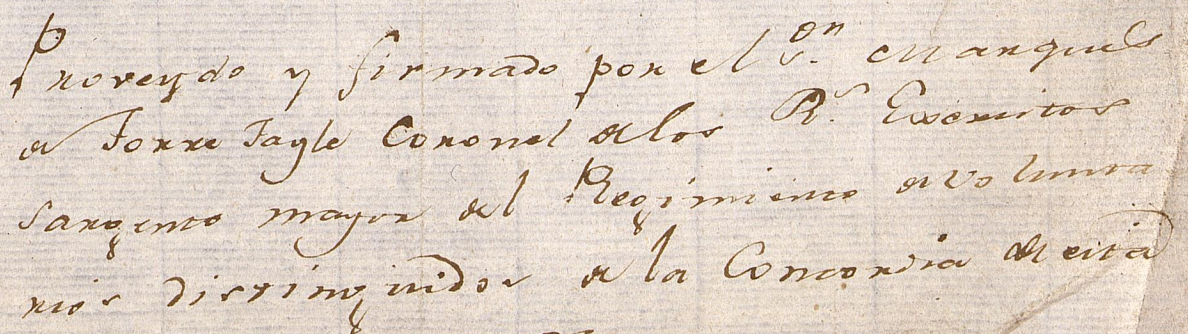 Proveydo y firmado por el S.ᵒʳ Marqués
de Torre Tagle Coronel de los R.ˢ Exercitos
Sargento mayor del Regimiento de Volunta
rios distinguidos de la Concordia de esta